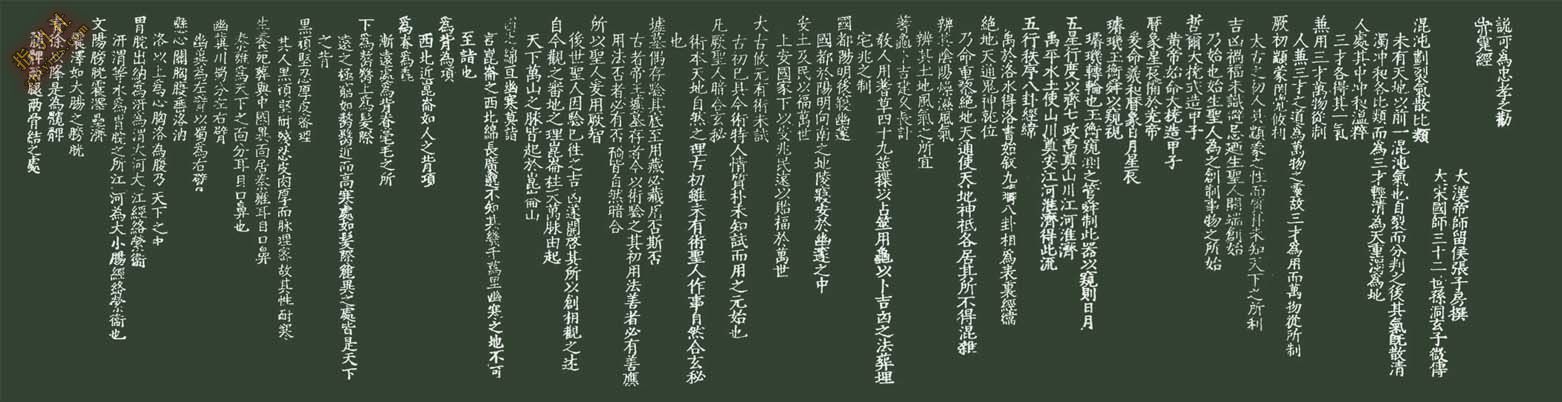 說可為忠孝之勸
赤霆經
大漢帝師留侯張子房撰
大宋國師三十二世孫洞玄子微傳
混沌剖裂氣散比類
未有天地以前一混沌氣也自裂而分判之後其氣旣散清
濁沖和各比類而為三才輕清為天重濁為地
人處其中沖和溫粹
三才各得其一氣
兼用三才萬物從制
人兼三才之道為萬物之靈故三才為用而萬物從所制
厥初顓蒙罔克攸利
太古之初人具顓蒙之性而質朴未知天下之所利
吉凶禍福未識避忌迺生聖人開端創始
乃始也始生聖人為之創制事物之所始
哲爾大撓式造甲子
黃帝始命大撓造甲子
曆象星辰開於堯帝
爰命羲和曆象日月星辰
璿璣玉衡舜以窺硯
璿璣轉輪也玉衡窺測之管舜制此器以窺則日月
五星行度以齊七政禹奠山川江河淮濟
禹平水土使山川奠安江河淮濟得此流
五行秩序八卦經緯
禹於洛水得洛書始叙九疇八卦相為表裏經緯
絕地天通鬼神就位
乃命重黎絕地天通使天地神祇各居其所不得混雜
辨以陰陽燥濕風氣
辨其土地風氣之所宜
蓍龜卜吉建久長計
敎人用蓍草四十九莖揲以占筮用龜以卜吉凶之法葬埋
宅兆之制
國都陽明後寢幽邃
國都於陽明向南之地陵寢安於幽邃之中
安土及民以福萬世
上安國家下以及兆民遂以貽福於萬世
大古攸元有術未試
古初已具今術特人情質朴未知試而用之元始也
凡厥聖人暗合玄秘
術本天地自然之理古初雖未有術聖人作事自然合玄秘
也
墟墓偶存驗其於至用臧必臧用否斯否
古者帝王墟墓存者今以術驗之其初用法善者必有善應
用法否者必有不福皆自然暗合
所以聖人爰用啟智
後世聖人因驗已往之吉凶遂開啓其所以創相觀之述
自今觀之番地之理崑崙柱天萬脉由起
天下萬山之脉皆起於崑崙山
西北綿亘幽寒莫詣
言崑崙之西北綿長廣邈不知其幾千萬里幽寒之地不可
至詣也
為背為項
西北近崑崙如人之背項
為脊為髦
漸東遠處為背脊毫毛之所
下為勢臀上為髮際
遠之極始如勢臀近而高寒處如髮際寵異之處皆是天下
之背
黑頑堅忍原皮密理
其人黑頑堅耐殘忍皮肉厚而脉理密故其性耐寒
生養死葬與中國異面居秦雍耳目口鼻
秦雍為天下之面分耳目口鼻也
幽冀川蜀分左右臂
幽冀為左臂以蜀為右臂
懸心關胸股無洛油
洛以上為心胸洛為腹乃天下之中
胃脘出納為濟為渭大河大江經絡縈衞
汧渭等水為胃脘之所江河為大小腸經絡縈衞也
文陽膀胱雷澤與濟
雷澤如大腸之膀胱
青徐以降是為髖髀
髖髀兩腿兩骨結之處